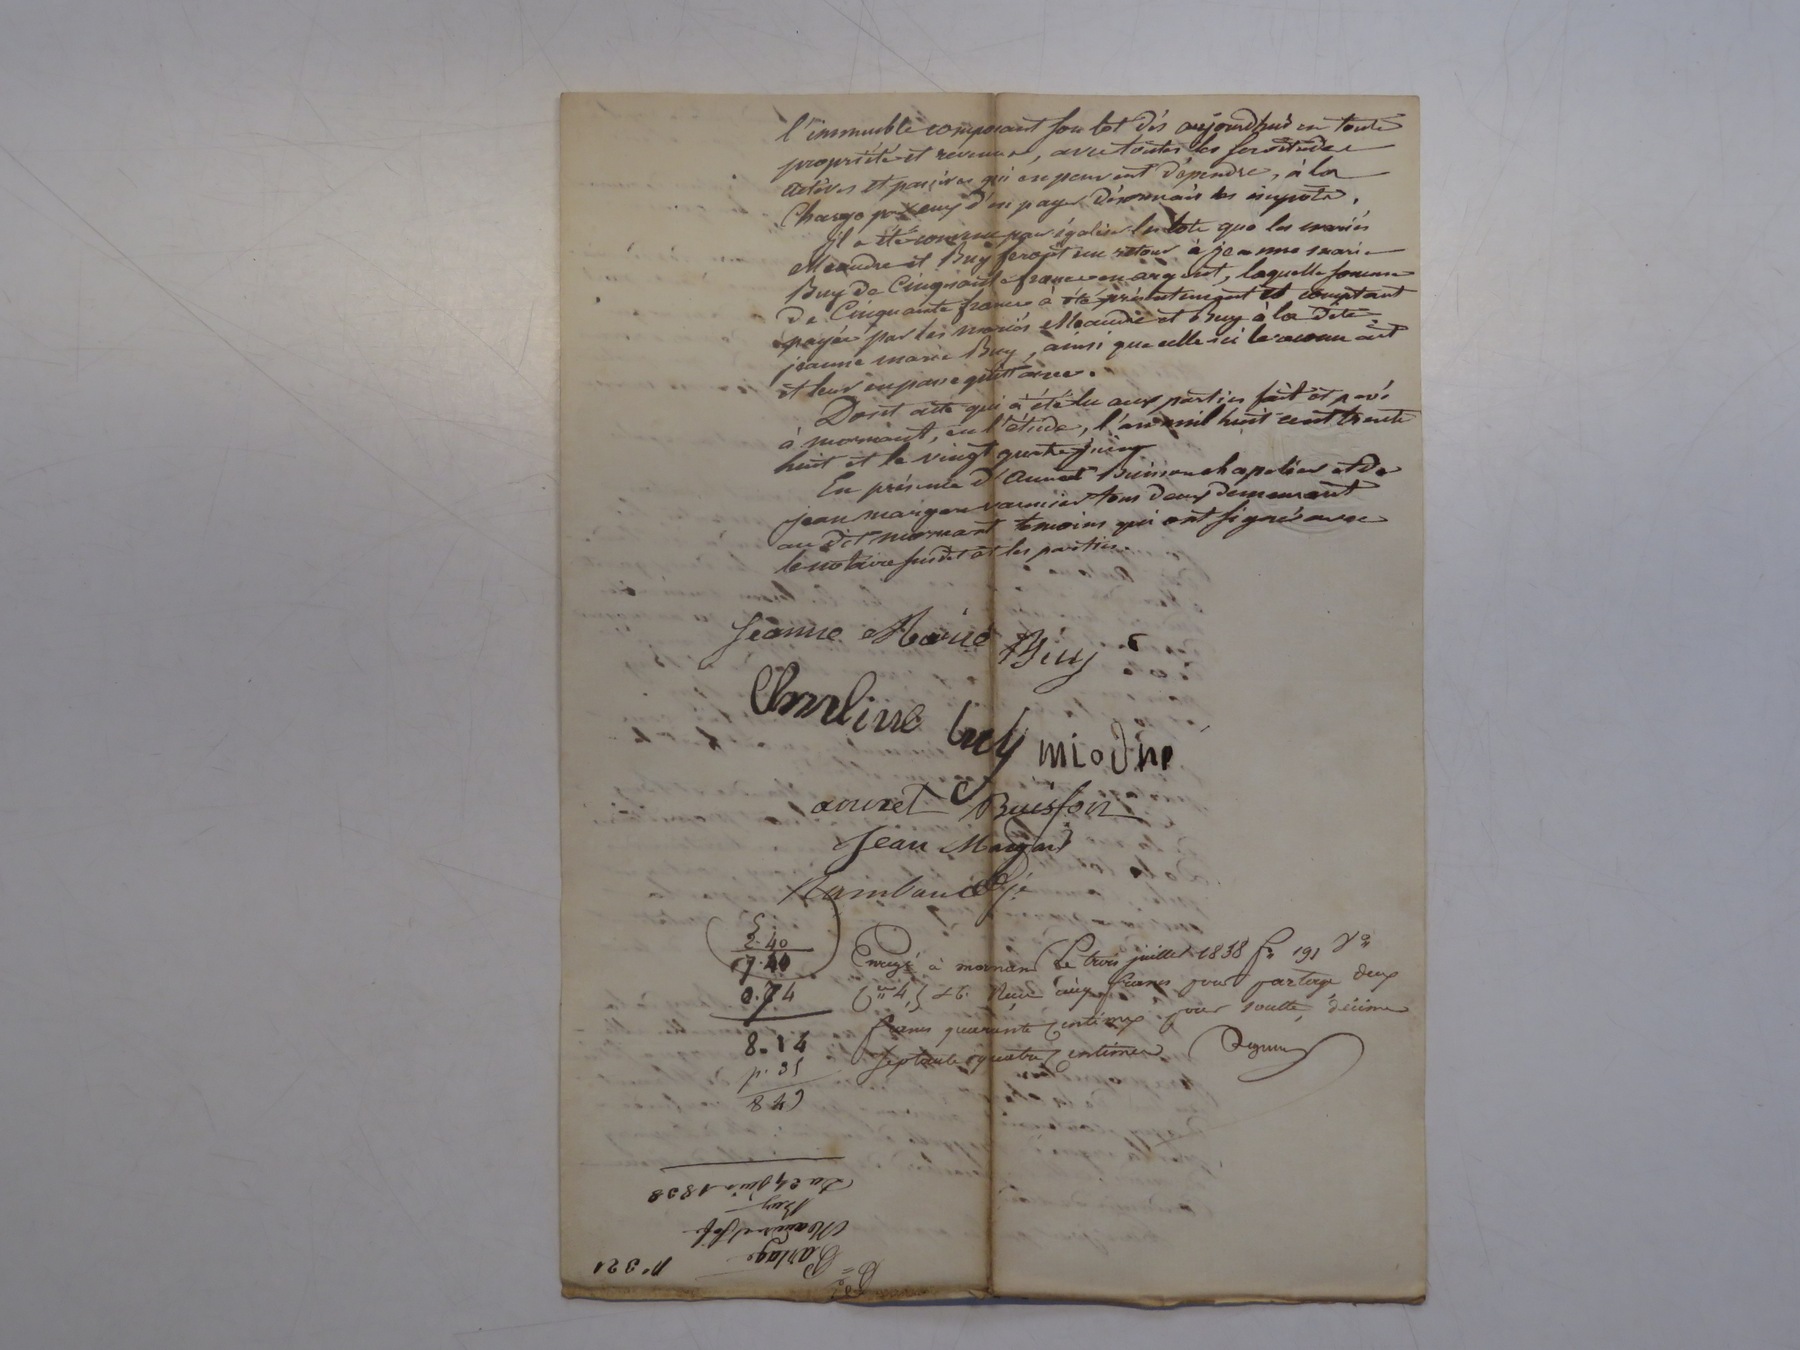 l'immeuble composant son lot dès aujourdhui en toute
propriété et revenus, avec toutes les servitudes
actives et passives qui en peuvent dépendre, à la
charge par eux d'en payer désormais les impots.
il a été convenu pour égaliser les lots que les mariés
Meandre et Buy feront un retour à jeanne marie
Buy de Cinquante francs en argent, laquelle somme
de Cinquante francs à été présentement et comptant
payée par les mariés Meandre et Buy à la dite
jeanne marie Buy, ainsi que celle ci le reconnait
et leur en passe quittance.
Dont acte qui a été lu aux parties fait et passé
à mornant, en l'étude, l'an mil huit cent trente
huit et le vingt quatre juin
En présence d'annet Buisson chapelier et de
jean margan tous deux demeurant
au dit mornant temoins qui ont signés avec
le notaire susdit et les parties.
Jeanne Marie Buy
Buy
annet Buisson
Jean Margan
Rambaud
5
2.40
7.40
0.74
8.14
Enregé à mornant Le trois juillet 1838 fo 191 Vo
Reçu cinq francs pour partage deux
francs quarante centimes pour soulte, décime
septante quatre centimes
Du 24 juin 1838
Buy
Partage
no 321